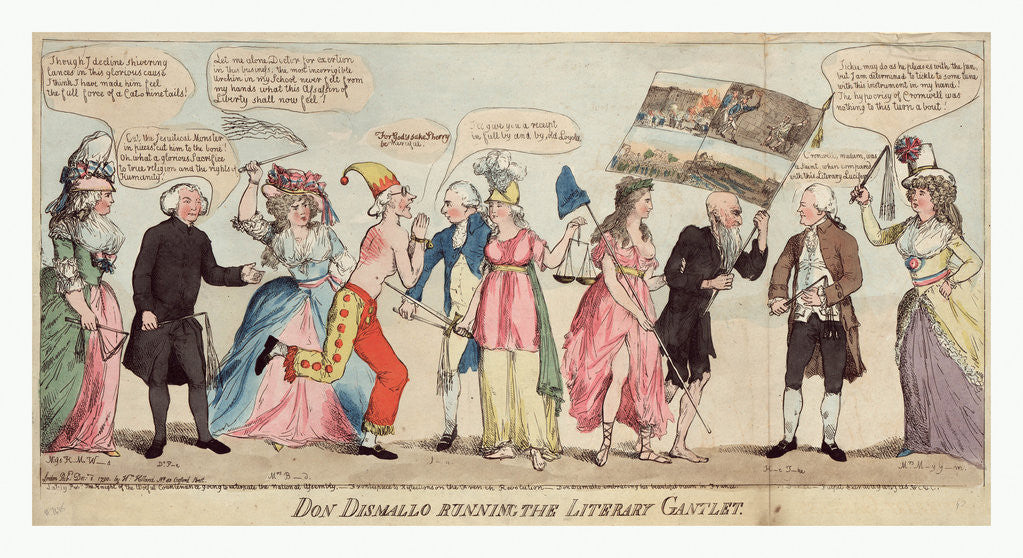 Though I decline shivering
lances in this glorious cause
I think I have made him feel
the full force of a Cat o'nine tails!
Cut the Jesuitical Monster
in pieces, cut him to the bone!
Oh what a glorious Sacrifice
to true religion and the rights of
Humanity!
Let me alone, Doctor for exertion
in this business; the most incorrigible
Urchin in my School never felt from
my hands what this Assassin of
Liberty shall now feel!
For God's sake Sherry
be merciful.
I'll give you a receipt
in full by and by, old Loyola.
Tickle may do as he pleases with the pen,
but I am determined to tickle to some tune
with this instrument in my hand!
The hypocrisy of Cromwell was
nothing to this turn about!
Cromwell, madam, was
a Saint, when compared
with this Literary Lucifer
Miss H. M. W—s
Dr. P—e
Mrs. B—d
H—e T—ke
Mrs. M—y G—m
London Pub. Dec. 1. 1790. by Wm. Holland No. 50 Oxford Street
The Knight of the Woful Countenance going to extirpate the National Assembly.— Frontispiece to Reflections on the French Revolution— Don Dismallo
DON DISMALLO RUNNING THE LITERARY GANTLET.